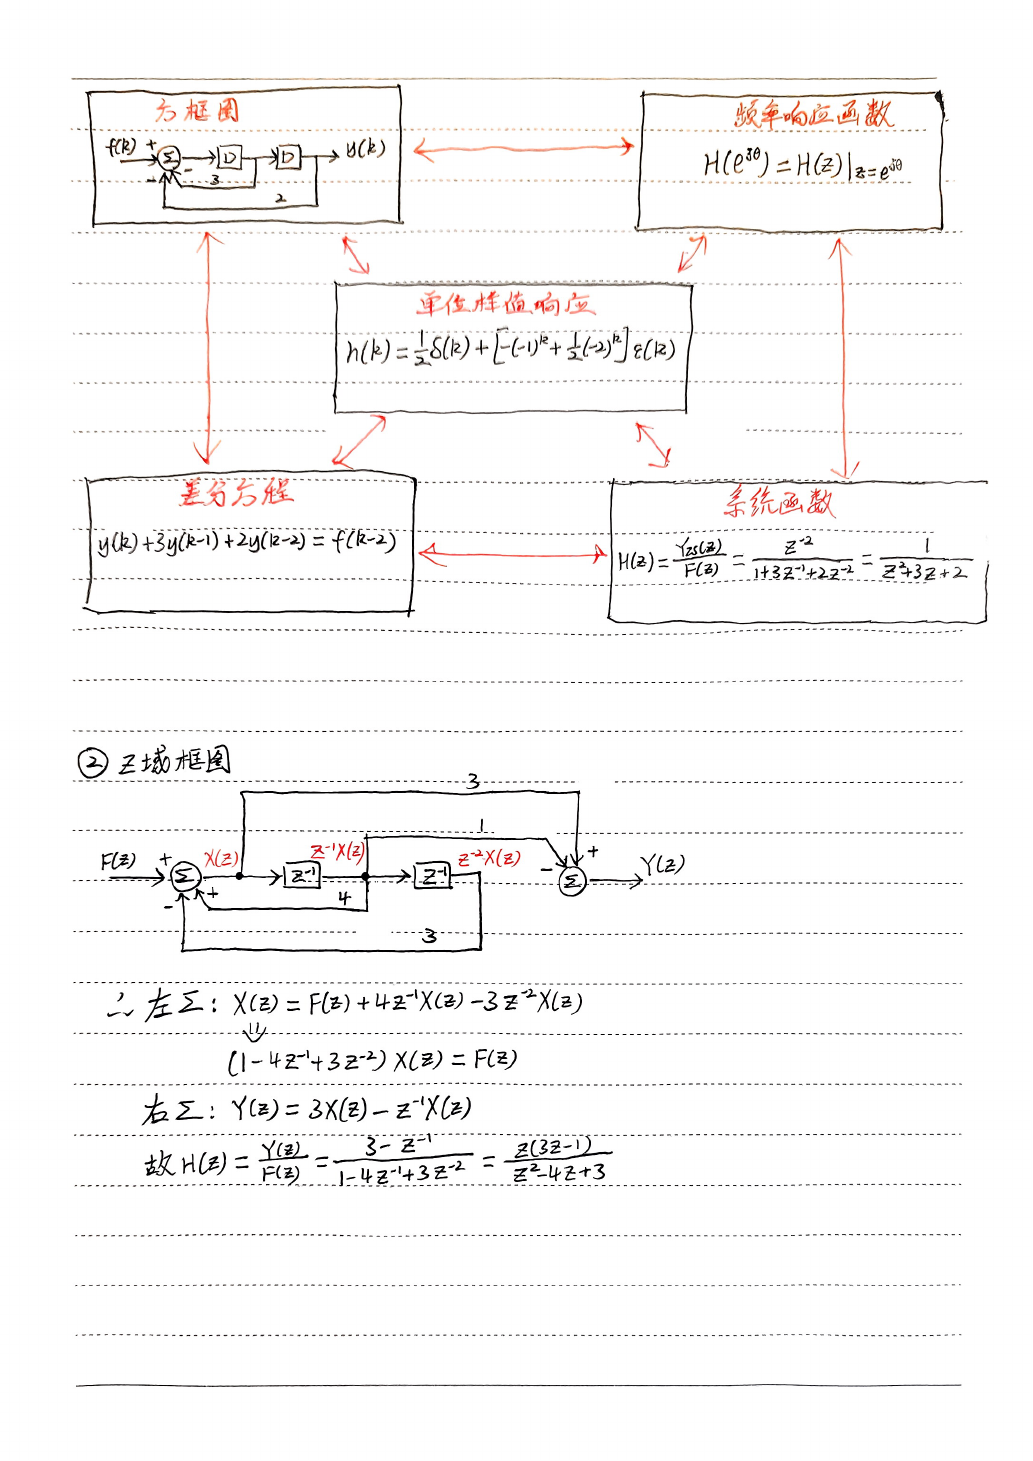 方框图
f(k) + Σ D D y(k)
- - 3
2
频率响应函数
H(e^{jθ}) = H(z)|_{z=e^{jθ}}
单位样值响应
h(k) = \frac{1}{2}δ(k) + [-(-1)^k + \frac{1}{2}(-2)^k]ε(k)
差分方程
y(k)+3y(k-1)+2y(k-2) = f(k-2)
系统函数
H(z) = \frac{Yzs(z)}{F(z)} = \frac{z^{-2}}{1+3z^{-1}+2z^{-2}} = \frac{1}{z^2+3z+2}
② Z域框图
3
1
F(z) + Σ X(z) z^{-1} z^{-1}X(z) z^{-2}X(z) z^{-1} - + Σ Y(z)
- + 4
3
∴ 左Σ: X(z) = F(z) + 4z^{-1}X(z) - 3z^{-2}X(z)
⇓
(1-4z^{-1}+3z^{-2}) X(z) = F(z)
右Σ: Y(z) = 3X(z) - z^{-1}X(z)
故 H(z) = \frac{Y(z)}{F(z)} = \frac{3-z^{-1}}{1-4z^{-1}+3z^{-2}} = \frac{z(3z-1)}{z^2-4z+3}